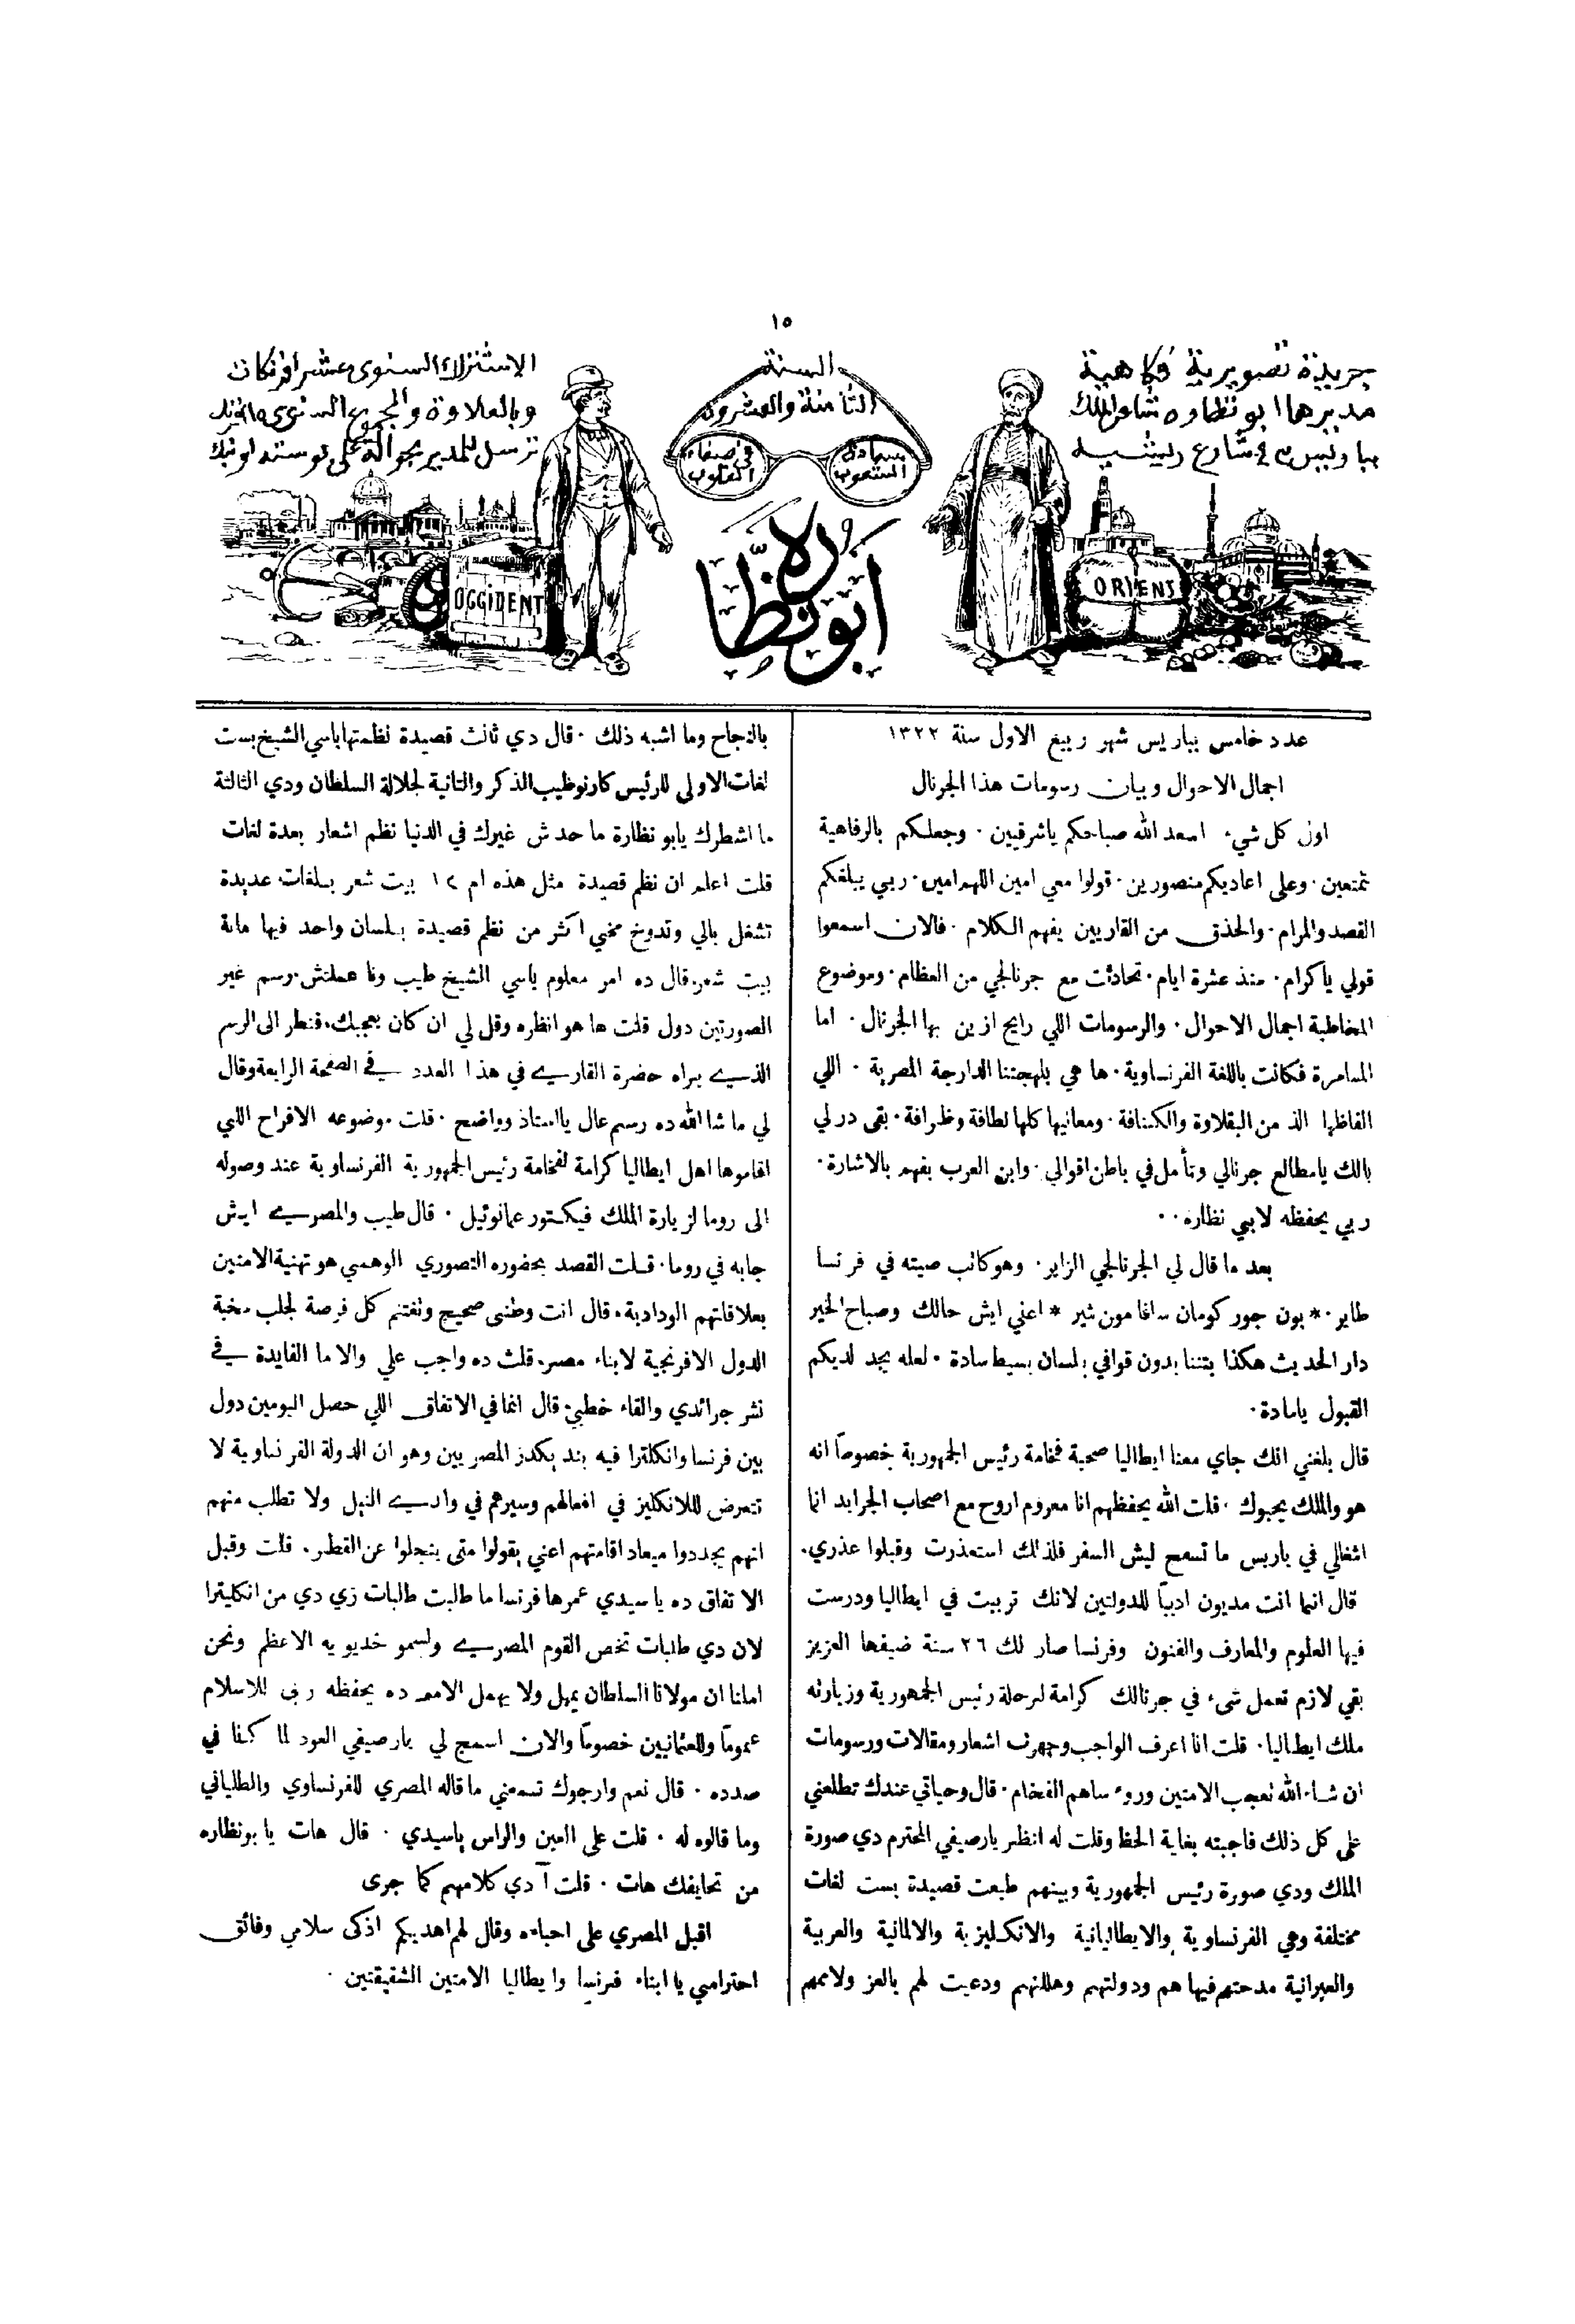 ١٥
جريدة تصويرية فكاهية
مديرها ابو نظاره شاعر الملك
السنة
الثامنة والعشرون
الاشتراك السنوى عشر افرنكات
وبالعلاوة والمجموع السنوى
ترسل للمدير بحوالة على بوسته او بنك
سعادة الشعوب
فى صفاء القلوب
ORIENT
OCCIDENT
ابو نظارة
عدد خامس بباريس شهر ربيع الاول سنة ١٣٢٢
اجمال الاحوال وبيان رسومات هذا الجرنال
اول كل شيء اسعد الله صباحكم ياشرقيين . وجعلكم بالرفاهية
متمتعين . وعلى اعاديكم منصورين . قولوا معي امين اللهم امين . ربي يبلغكم
القصد والمرام . والحذق من القاريين يفهم الكلام . فالان اسمعوا
قولي ياكرام . منذ عشرة ايام . تحادثت مع جرنالجي من العظام . وموضوع
المخاطبة اجمال الاحوال . والرسومات اللي رايح ازين بها الجرنال . اما
المسامرة فكانت باللغة الفرنساوية . ها هي بلهجتنا الدارجة المصرية . اللي
الفاظها الذ من البقلاوة والكنافة . ومعانيها كلها لطافة وظرافة . بقى درلي
بالك يامطالع جرنالي وتأمل في باطن اقوالي . وابن العرب يفهم بالاشارة .
ربي يحفظه لابي نظاره . .
بعد ما قال لي الجرنالجي الزاير . وهو كاتب صيته في فرنسا
طاير . * بون جور كومان سافا مون شير * اعني ايش حالك وصباح الخير
دار الحديث هكذا بيننا بدون قوافي بلسان بسيط سادة . لعله يجد لديكم
القبول ياسادة .
قال بلغني انك جاي معنا ايطاليا صحبة فخامة رئيس الجمهورية خصوصًا انه
هو والملك يحبوك . قلت الله يحفظهم انا معزوم اروح مع اصحاب الجرايد انما
اشغالي في باريس ما تسمح ليش السفر فلذلك استعذرت وقبلوا عذري .
قال انما انت مديون ادبيًا للدولتين لانك تربيت في ايطاليا ودرست
فيها العلوم والمعارف والفنون وفرنسا صار لك ٢٦ سنة ضيفها العزيز
بقي لازم تعمل شيء في جرنالك كرامة لرحلة رئيس الجمهورية وزيارته
ملك ايطاليا . قلت انا اعرف الواجب وجهزت اشعار ومقالات ورسومات
ان شاء الله تعجب الامتين وروء ساهم الفخام . قال وحياتي عندك تطلعني
على كل ذلك فاجبته بغاية الحظ وقلت له انظر يارصيفي المحترم دي صورة
الملك ودي صورة رئيس الجمهورية وبينهم طبعت قصيدة بست لغات
مختلفة وهي الفرنساوية والايطاليانية والانكليزية والالمانية والعربية
والعبرانية مدحتهم فيها هم ودولتهم وملتهم ودعيت لهم بالعز ولاممهم
بالنجاح وما اشبه ذلك . قال دي ثالث قصيدة نظمتها ياسي الشيخ بست
لغات الاولى للرئيس كارنو طيب الذكر والثانية لجلالة السلطان ودي الثالثة
ما اشطرك يابو نظارة ما حدش غيرك في الدنيا نظم اشعار بعدة لغات
قلت اعلم ان نظم قصيدة مثل هذه ام ١٢ بيت شعر بلغات عديدة
تشغل بالي وتدوخ مخي اكثر من نظم قصيدة بلسان واحد فيها ماية
بيت شعر. قال ده امر معلوم ياسي الشيخ طيب ونا عملتش رسم غير
الصورتين دول قلت ها هو انظره وقل لي ان كان يعجبك. فنظر الى الرسم
الذي يراه حضرة القاري في هذا العدد في الصفحة الرابعة وقال
لي ما شا الله ده رسم عال يااستاذ وواضح . قلت موضوعه الافراح اللي
اقاموها اهل ايطاليا كرامة لفخامة رئيس الجمهورية الفرنساوية عند وصوله
الى روما لزيارة الملك فيكتور عمانوئيل . قال طيب والمصري ايش
جابه في روما . قلت القصد بحضوره التصوري الوهمي هو تهنية الامتين
بعلاقاتهم الودادية . قال انت وطني صحيح وتغتنم كل فرصة لجلب محبة
الدول الافرنجية لابناء مصر. قلت ده واجب علي والا ما الفايدة في
نشر جرائدي والقاء خطبي. قال انما في الاتفاق اللي حصل اليومين دول
بين فرنسا وانكلترا فيه بند يكدر المصريين وهو ان الدولة الفرنساوية لا
تتعرض للانكليز في افعالهم وسيرهم في وادي النيل ولا تطلب منهم
انهم يحددوا ميعاد اقامتهم اعني يقولوا متى ينجلوا عن القطر . قلت وقبل
الاتفاق ده ياسيدي عمرها فرنسا ما طالبت طالبات زي دي من انكليترا
لان دي طلبات تخص القوم المصري ولسمو خديويه الاعظم ونحن
املنا ان مولانا السلطان يمهل ولا يهمل الامر ده يحفظه ربي للاسلام
عمومًا وللعثمانيين خصوصًا والان اسمح لي يارصيفي العود لما كنا في
صدده . قال نعم وارجوك تسمعني ما قاله المصري للفرنساوي والطلياني
وما قالوه له . قلت على العين والراس ياسيدي . قال هات يا بونظاره
من تحايفك هات . قلت آدي كلامهم كما جرى
اقبل المصري على احباءه وقال لهم اهديكم اذكى سلامي وفائق
احترامي يا ابناء فرنسا وايطاليا الامتين الشقيقتين .